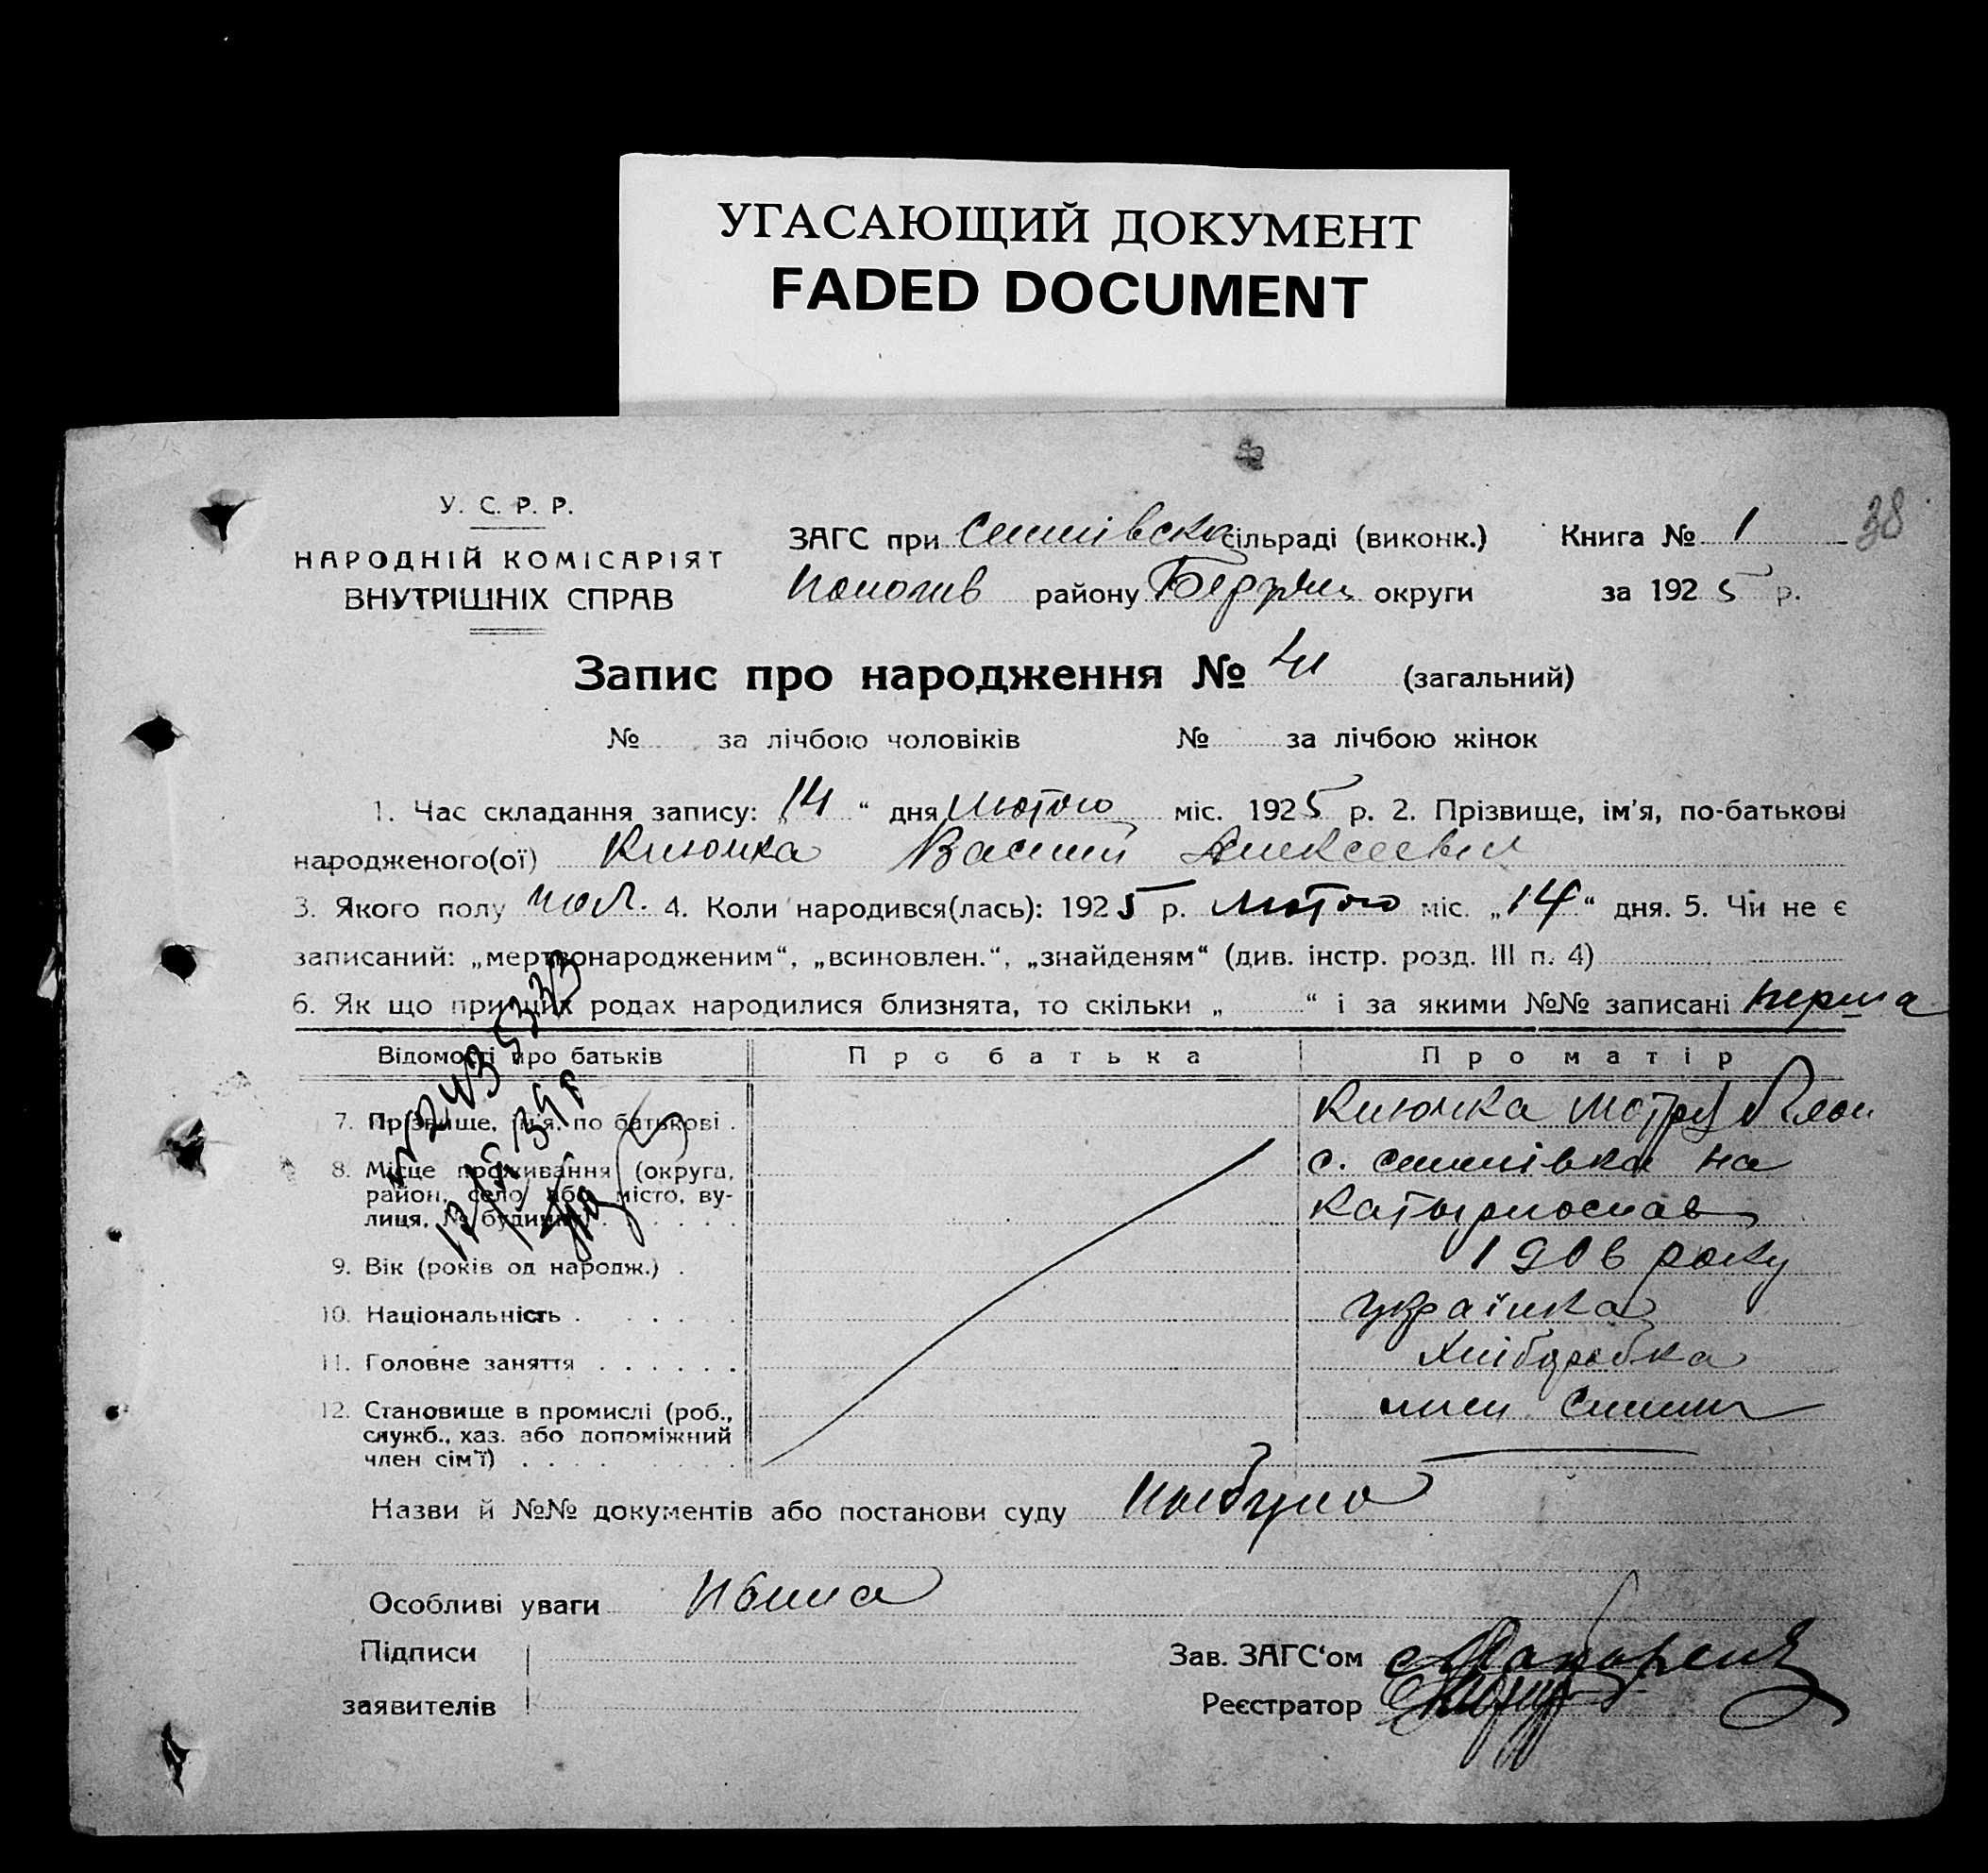 УГАСАЮЩИЙ ДОКУМЕНТ
FADED DOCUMENT
У. С. Р. Р.
НАРОДНІЙ КОМІСАРІЯТ
ВНУТРІШНІХ СПРАВ
ЗАГС при сільраді (виконк.) Книга № 1 38
району округи за 1925 р.
Запис про народження № (загальний)
№ за лічбою чоловіків № за лічбою жінок
1. Час складання запису: „14“ дня лютого міс. 1925 р. 2. Прізвище, ім'я, по-батькові
народженого(ої) Клюшка Василий Алексеевич
3. Якого полу чол. 4. Коли народився(лась): 1925 р. лютого міс. „14“ дня. 5. Чи не є
записаний: „мертвонародженим“, „всиновлен.“, „знайденям“ (див. інстр. розд. III п. 4)
6. Як що при цих родах народилися близнята, то скільки „ “ і за якими №№ записані перша
Відомості про батьків Про батька Про матір
7. Прізвище, ім'я, по батькові . Клюшка Мотря
8. Місце проживання (округа, с. на
район, село або місто, ву-
лиця, № будинку) . . . . . .
9. Вік (років од народж.) . 1906 року
10. Національність . . . . . українка
11. Головне заняття . . . . . . хліборобка
12. Становище в промислі (роб., член
служб., хаз. або допоміжний
член сім'ї) . . . . . . . .
Назви й №№ документів або постанови суду небуло
Особливі уваги
Підписи
заявителів
Зав. ЗАГС‘ом
Реєстратор